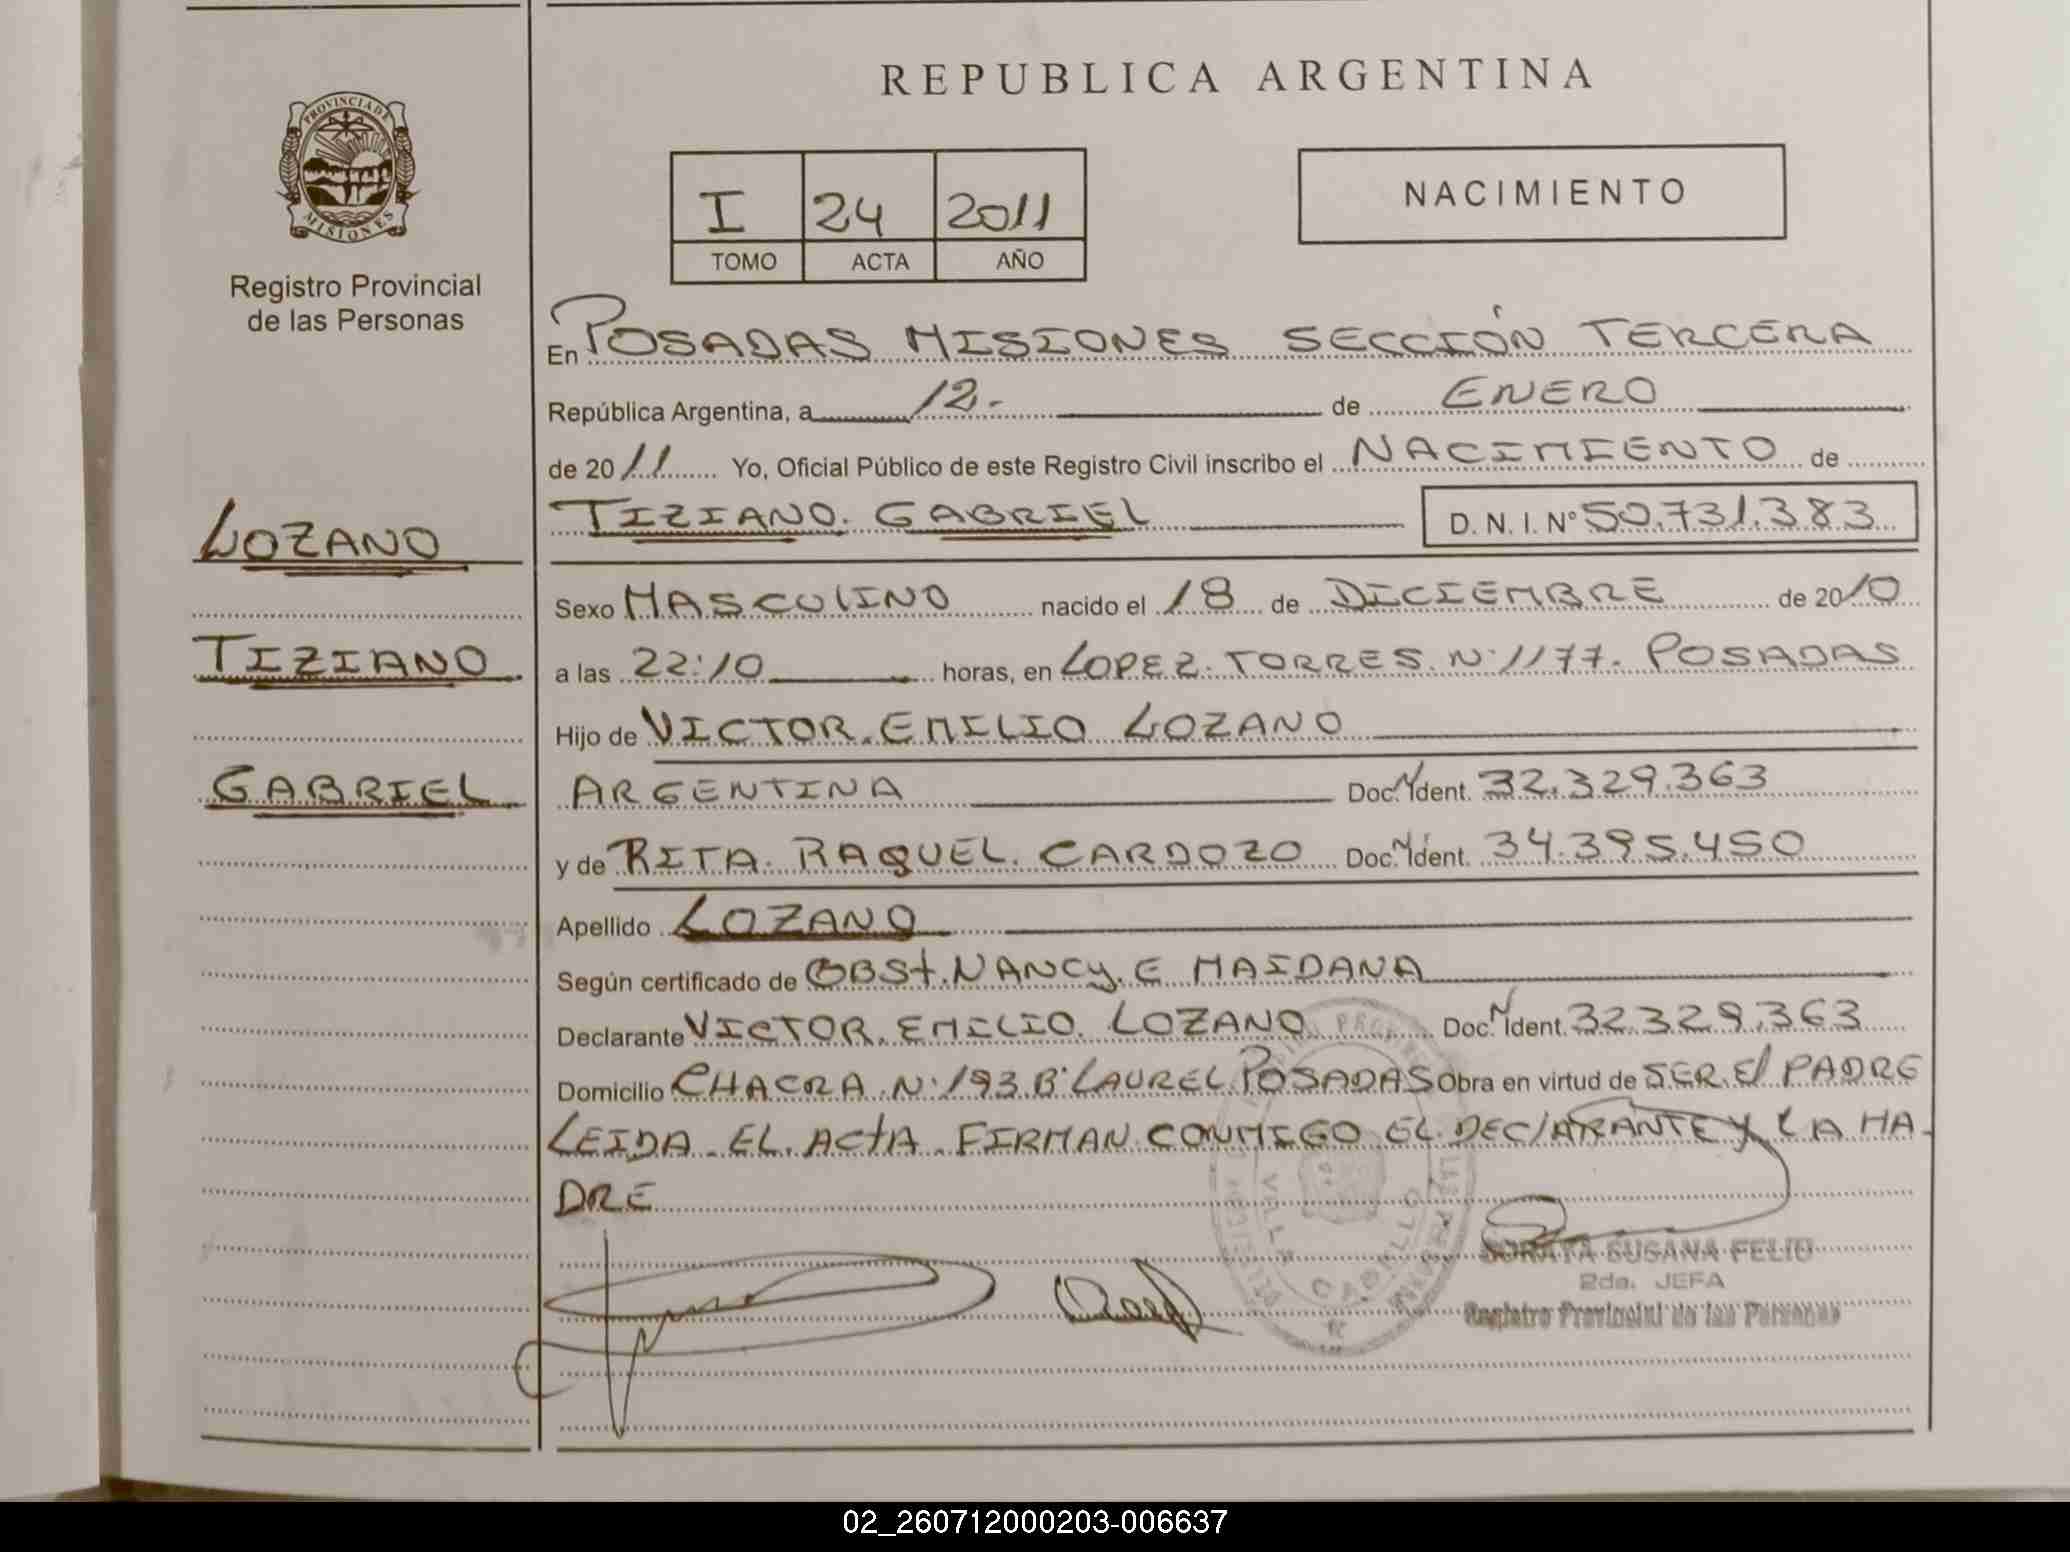 REPUBLICA ARGENTINA
PROVINCIA DE
MISIONES
Registro Provincial
de las Personas
I 24 2011
TOMO ACTA AÑO
NACIMIENTO
En POSADAS MISIONES SECCIÓN TERCERA
República Argentina, a 12.- de ENERO
de 2011 Yo, Oficial Público de este Registro Civil inscribo el NACIMIENTO de
TIZIANO. GABRIEL D. N. I. Nº 50.731.383
LOZANO
TIZIANO
GABRIEL
Sexo MASCULINO nacido el 18 de DICIEMBRE de 2010
a las 22:10 horas, en LOPEZ. TORRES. Nº 1177. POSADAS
Hijo de VICTOR. EMILIO LOZANO
ARGENTINA Doc. Ident. 32.329.363
y de RITA. RAQUEL. CARDOZO Doc. Ident. 34.395.450
Apellido LOZANO
Según certificado de OBSt. NANCY. E MAIDANA
Declarante VICTOR. EMILIO. LOZANO Doc. Ident. 32.329.363
Domicilio CHACRA. Nº 193. Bº LAUREL. POSADAS Obra en virtud de SER. El PADRE
LEIDA. EL. ACtA. FIRMAN CONMIGO EL DEClARANTE Y LA MA-
DRE
VILLA CABELLO
SORAYA SUSANA FELIU
2da. JEFA
Registro Provincial de las Personas
02_260712000203-006637